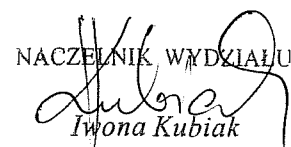 NACZELNIK WYDZIAŁU
Kubiak
Iwona Kubiak